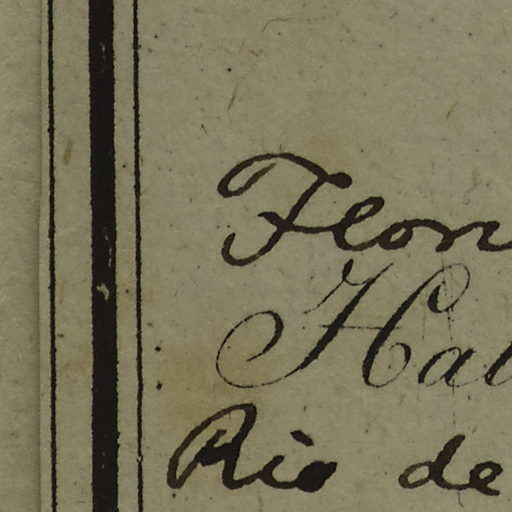 Flor
Hab
Rio de